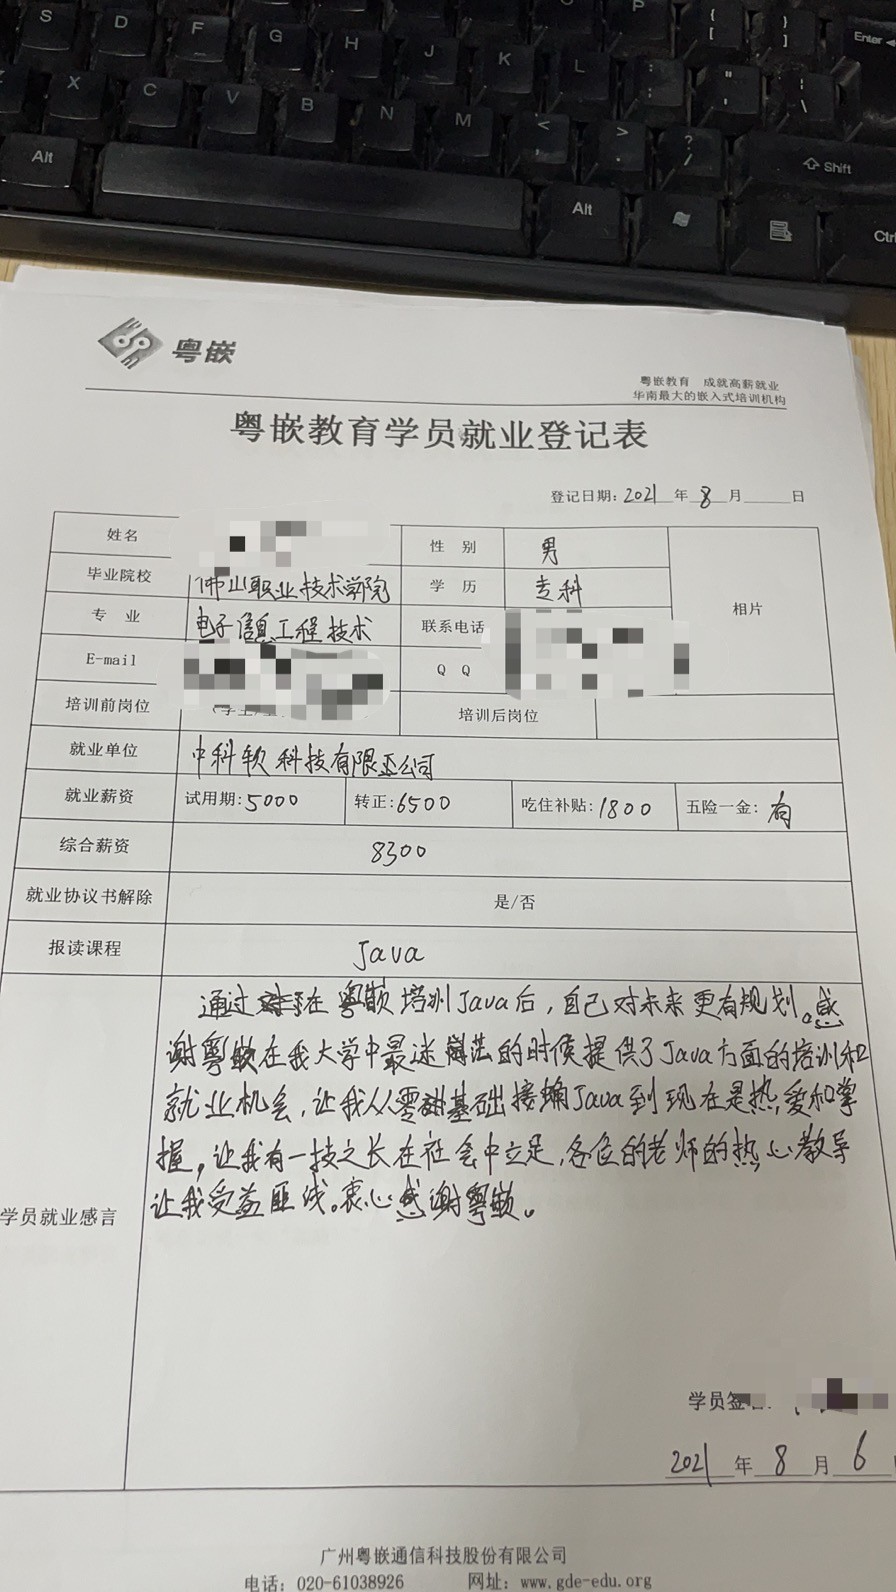 S D F G H J K L P { [ } ] Enter
X C V B N M < , > . ? / Shift
Alt Alt Ctrl
粤嵌
粤嵌教育 成就高薪就业
华南最大的嵌入式培训机构
粤嵌教育学员就业登记表
登记日期: 2021 年 8 月 日
姓名 性 别 男 相片
毕业院校 佛山职业技术学院 学 历 专科
专 业 电子信息工程技术 联系电话
E-mail Q Q
培训前岗位 培训后岗位
就业单位 中科软科技有限公司
就业薪资 试用期: 5000 转正: 6500 吃住补贴: 1800 五险一金: 有
综合薪资 8300
就业协议书解除 是/否
报读课程 Java
学员就业感言
通过在粤嵌培训Java后,自己对未来更有规划。感
谢粤嵌在我大学中最迷茫的时候提供了Java方面的培训和
就业机会,让我从零基础接触Java到现在是热爱和掌
握,让我有一技之长在社会中立足,各位的老师的热心教导
让我受益匪浅。衷心感谢粤嵌。
学员签
2021 年 8 月 6
广州粤嵌通信科技股份有限公司
电话: 020-61038926 网址: www.gde-edu.org